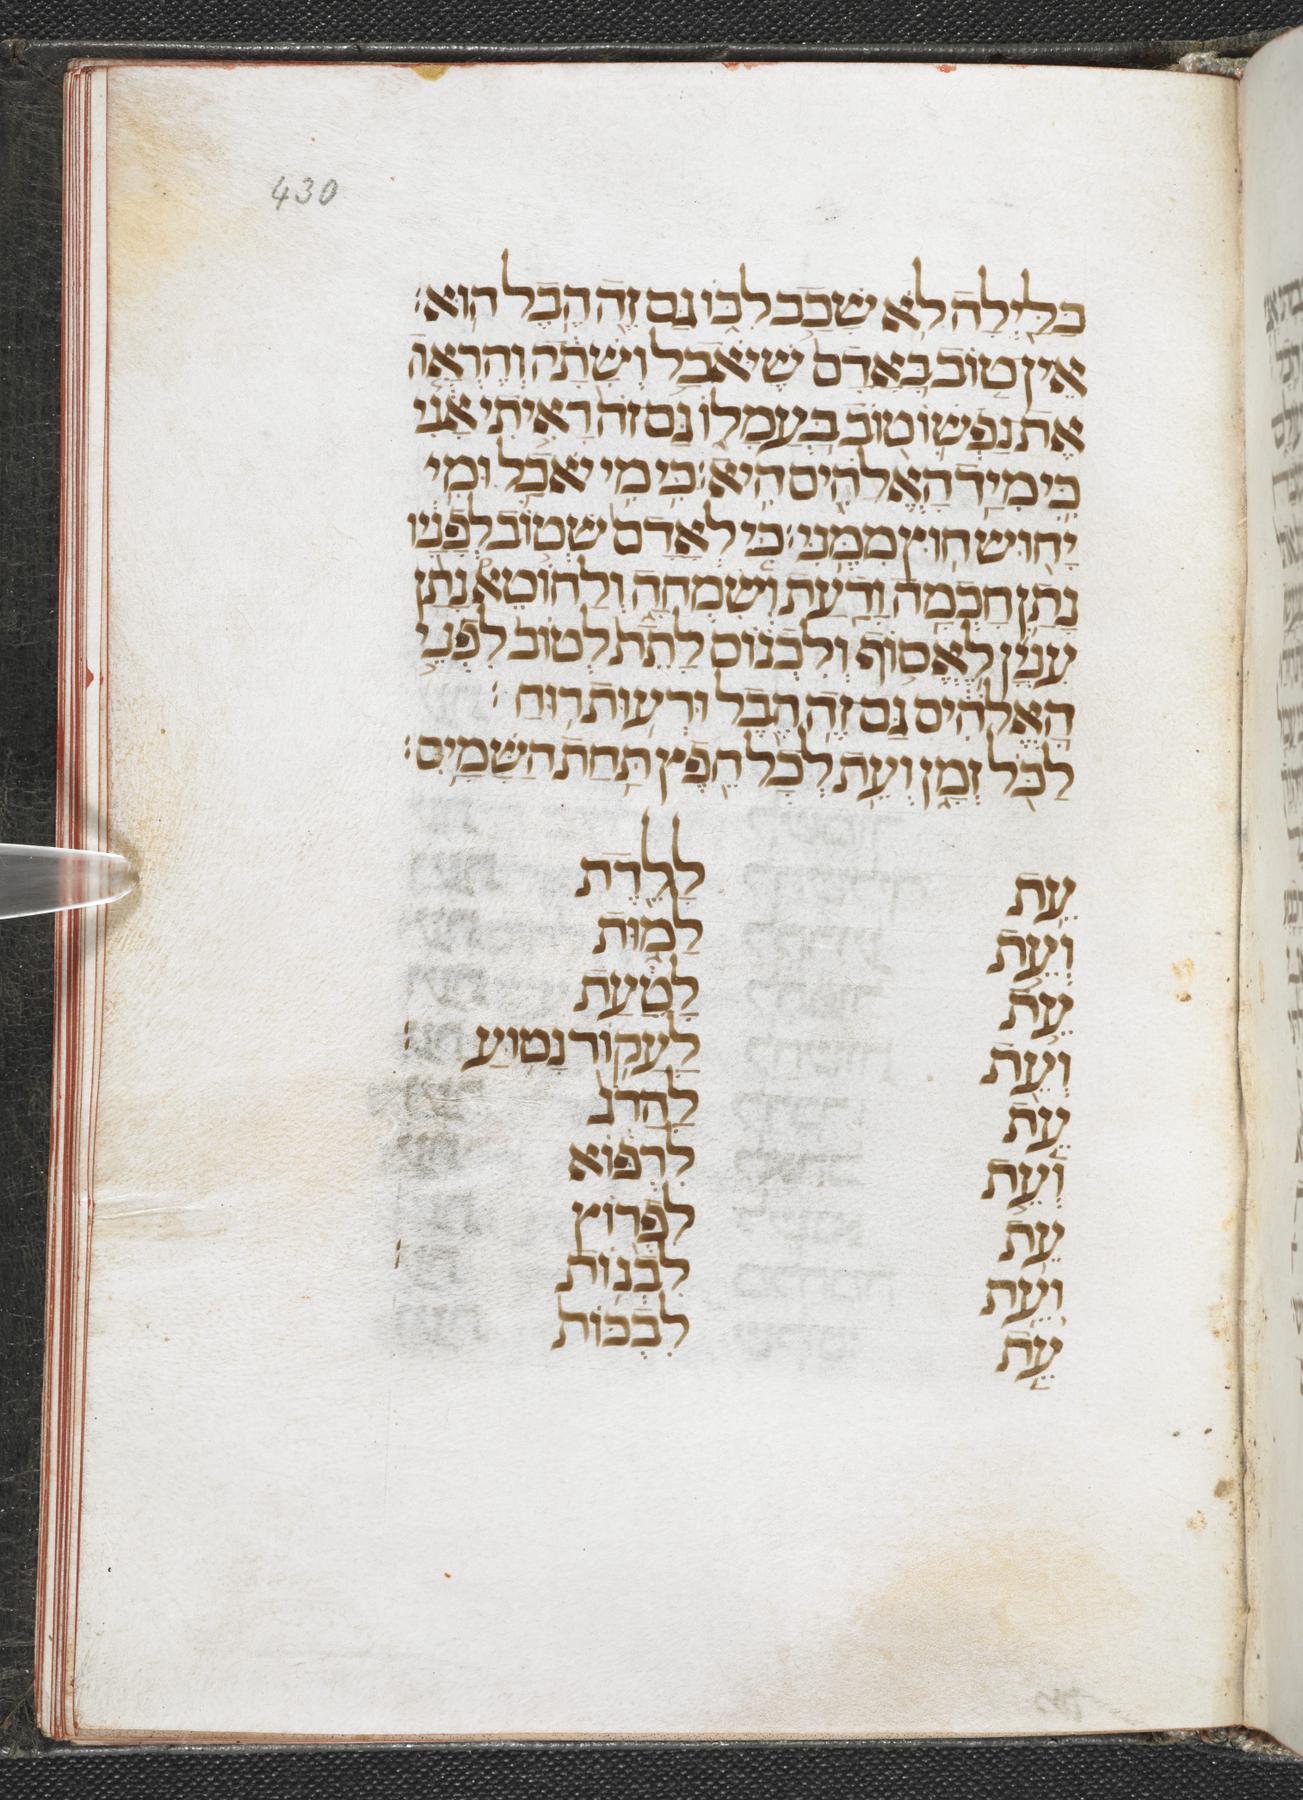 430
בַּלַּיְלָה לֹא שָׁכַב לִבּוֹ גַּם זֶה הֶבֶל הוּא׃
אֵין טוֹב בָּאָדָם שֶׁיֹּאכַל וְשָׁתָה וְהֶרְאָה
אֶת נַפְשׁוֹ טוֹב בַּעֲמָלוֹ גַּם זֹה רָאִיתִי אָנִי
כִּי מִיַּד הָאֱלֹהִים הִיא׃ כִּי מִי יֹאכַל וּמִי
יָחוּשׁ חוּץ מִמֶּנִּי׃ כִּי לְאָדָם שֶׁטּוֹב לְפָנָיו
נָתַן חָכְמָה וְדַעַת וְשִׂמְחָה וְלַחוֹטֶא נָתַן
עִנְיָן לֶאֱסוֹף וְלִכְנוֹס לָתֵת לְטוֹב לִפְנֵי
הָאֱלֹהִים גַּם זֶה הֶבֶל וּרְעוּת רוּחַ׃
לַכֹּל זְמָן וְעֵת לְכָל חֵפֶץ תַּחַת הַשָּׁמָיִם׃
עֵת לָלֶדֶת
וְעֵת לָמוּת
עֵת לָטַעַת
וְעֵת לַעֲקוֹר נָטוּעַ׃
עֵת לַהֲרֹג
וְעֵת לִרְפּוֹא
עֵת לִפְרוֹץ
וְעֵת לִבְנוֹת׃
עֵת לִבְכּוֹת